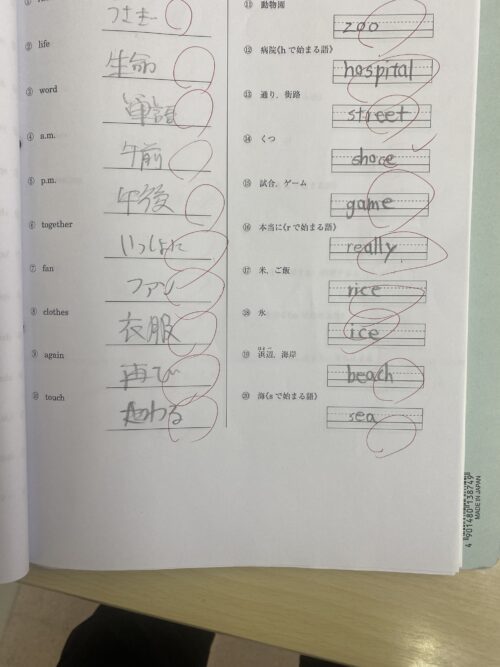 つき
② life
生命
③ word
単語
④ a.m.
午前
⑤ p.m.
午後
⑥ together
いっしょに
⑦ fan
ファン
⑧ clothes
衣服
⑨ again
再び
⑩ touch
⑪ 動物園
zoo
⑫ 病院《hで始まる語》
hospital
⑬ 通り，街路
street
⑭ くつ
shoce
⑮ 試合，ゲーム
game
⑯ 本当に《rで始まる語》
really
⑰ 米，ご飯
rice
⑱ 氷
ice
⑲ 浜辺，海岸
beach
⑳ 海《sで始まる語》
sea
4 901480 138749
MADE IN JAPAN